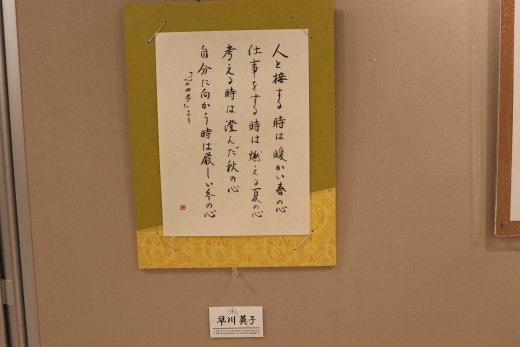 人と接する時は暖かい春の心
仕事をする時は燃える夏の心
考える時は澄んだ秋の心
自分に向かう時は厳しい冬の心
「心の四季」より
早川英子